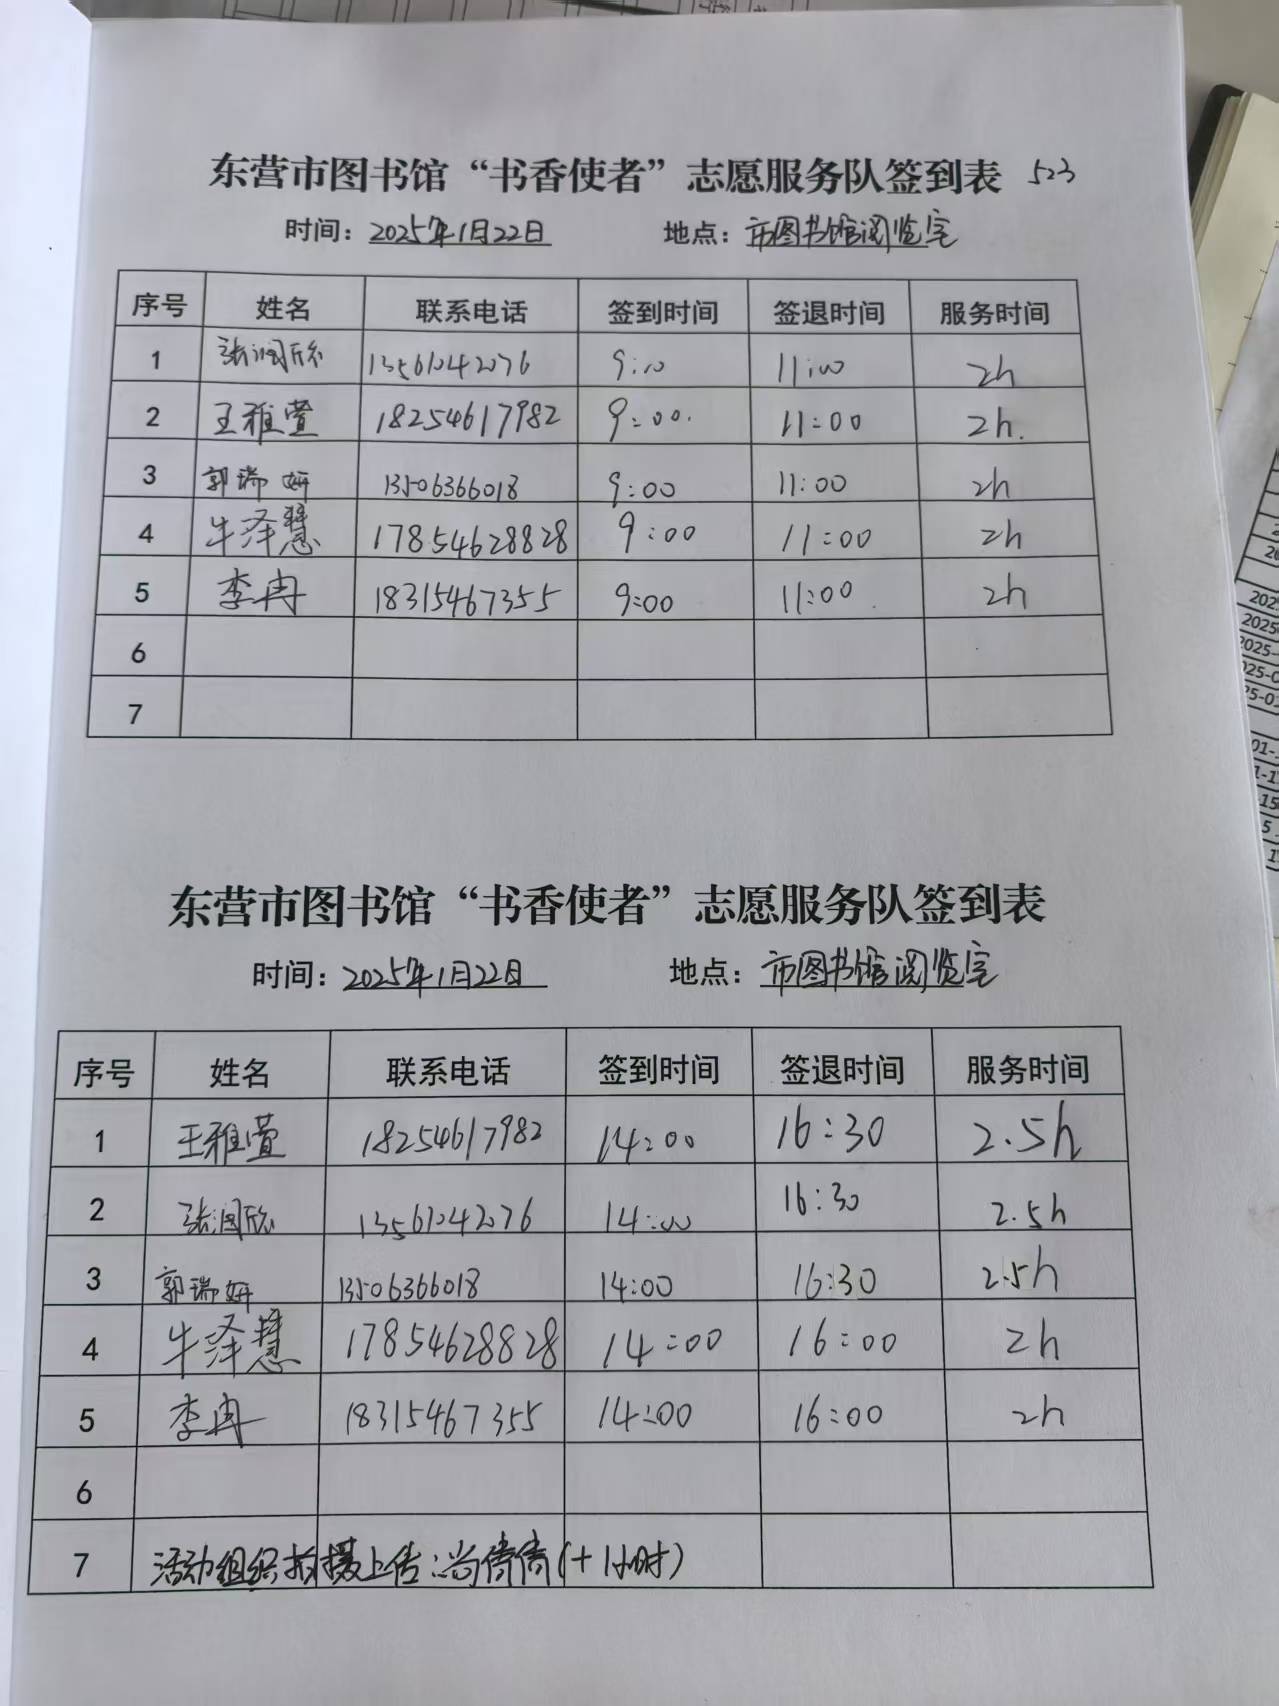 东营市图书馆“书香使者”志愿服务队签到表 523
时间：2025年1月22日 地点：市图书馆阅览室
序号 姓名 联系电话 签到时间 签退时间 服务时间
1 张润欣 13561042076 9:00 11:00 2h
2 王雅萱 18254617982 9:00. 11:00 2h.
3 郭瑞妍 13506366018 9:00 11:00 2h
4 牛泽慧 17854628828 9:00 11:00 2h
5 李冉 18315467355 9:00 11:00 2h
6
7
东营市图书馆“书香使者”志愿服务队签到表
时间：2025年1月22日 地点：市图书馆阅览室
序号 姓名 联系电话 签到时间 签退时间 服务时间
1 王雅萱 18254617982 14:00 16:30 2.5h
2 张润欣 13561042076 14:00 16:30 2.5h
3 郭瑞妍 13506366018 14:00 16:30 2.5h
4 牛泽慧 17854628828 14:00 16:00 2h
5 李冉 18315467355 14:00 16:00 2h
6
7 活动组织拍摄上传：尚倩倩（+1小时）